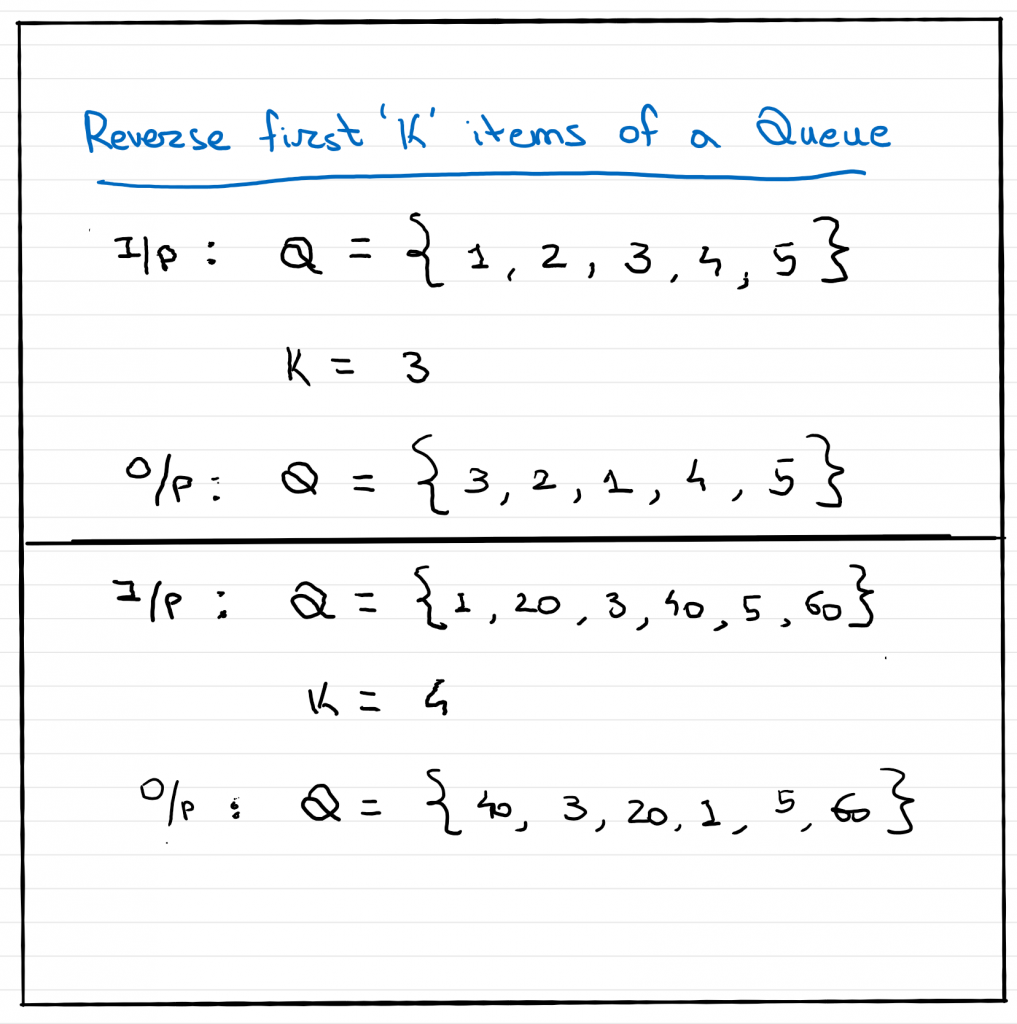 Reverse first 'K' items of a Queue
I/p : Q = { 1, 2, 3, 4, 5 }
K = 3
O/p : Q = { 3, 2, 1, 4, 5 }
I/p : Q = { 1, 20, 3, 40, 5, 60 }
K = 4
O/p : Q = { 40, 3, 20, 1, 5, 60 }